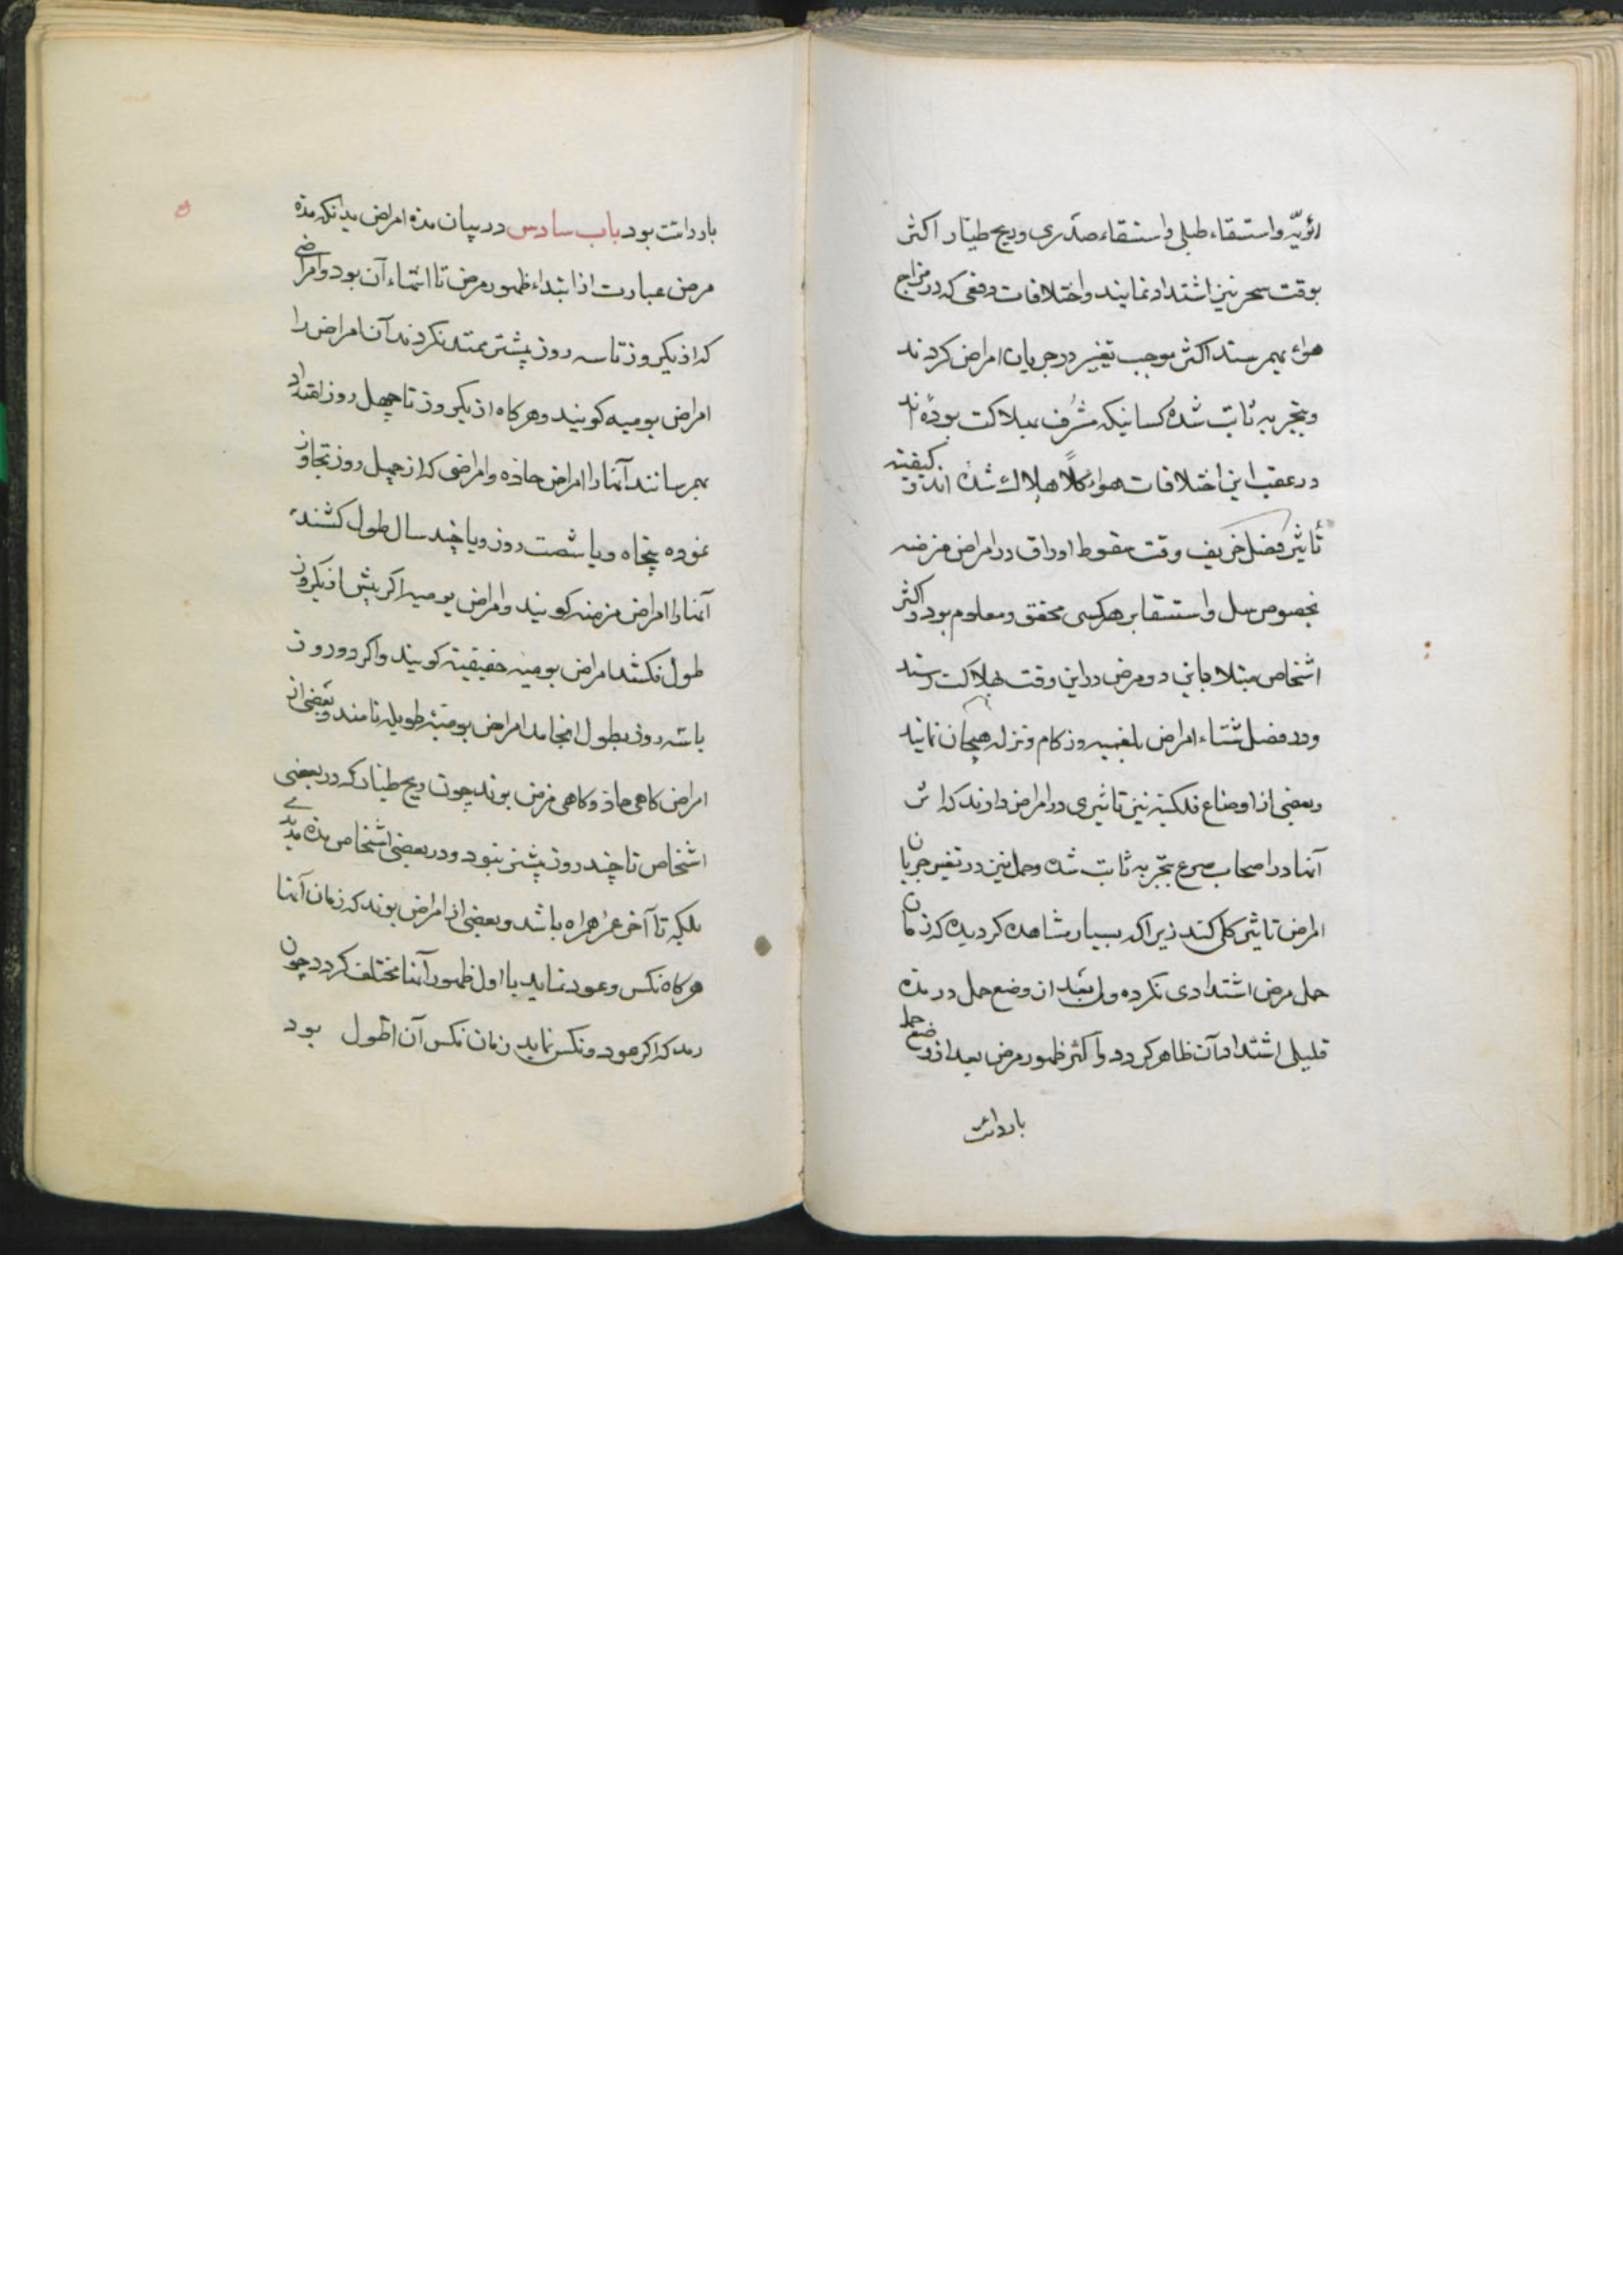 رئویّه و استسقاء طبلی و استسقاء صدری و ریح طیار اکثر
بوقت سحر نیز اشتداد نمایند و اختلافات دفعی که در مزاج
هواء بهمرسند اکثر موجب تغییر در جریان امراض کردند
و بتجربه ثابت شده کسانیکه مشرف بهلاکت بوده‌اند
در عقب این اختلافات هواء کلاً هلاک شده اند و کیفیته
تأثیر فصل خریف وقت سقوط اوراق در امراض مزمنه
بخصوص سل و استسقا بر هر کسی محقق و معلوم بود و اکثر
اشخاص مبتلا باین دو مرض در این وقت بهلاکت رسند
و در فصل شتاء امراض بلغمیه و زکام و نزله هیجان نمایند
و بعضی از اوضاع فلکیته نیز تاثیری در امراض دارند که اثر
آنها در اصحاب صرع بتجربه ثابت شده و حمل نیز در تغیر جریان
امراض تاثیر کلی کند زیرا که بسیار مشاهده کردیده که زمان
حمل مرض اشتدادی نکرده ولی بعد از وضع حمل در مدة
قلیلی اشتداد آن ظاهر کردد و اکثر ظهور مرض بعد از وضع حمل
باردائت
باردائت بود باب سادس در بیان مدة امراض بدانکه مدة
مرض عبارت از ابتداء ظهور مرض تا انتهاء آن بود و امراضی
که از یکروز تا سه روز بیشتر ممتد نکردند آن امراض را
امراض یومیه کویند و هرکاه از یکروز تا چهل روز امتداد
بهمرسانند آنها را امراض حاده و امراضی که از چهل روز تجاوز
نموده پنجاه و یا شصت روز و یا چند سال طول کشند
آنها را امراض مزمنه کویند و امراض یومیه اکر بیش از یکروز
طول نکشد امراض یومیه حقیقیته کویند و اکر دو روز
یا سه روز بطول انجامد امراض یومیته طویله نامند و بعضی از
امراض کاهی حاد و کاهی مزمن بوند چون ریح طیار که در بعضی
اشخاص تا چند روز بیشتر نبود و در بعضی اشخاص مدة مدیدی
بلکه تا آخر عمر همراه باشد و بعضی از امراض بوند که زمان آنها
هرکاه نکس و عود نماید با اول ظهور آنها مختلف کردد چون
رمد که اکر عود و نکس نماید زمان نکس آن اطول بود